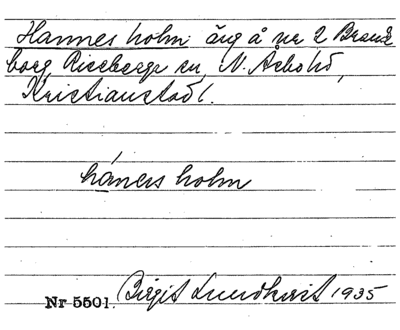 Hannes holm äng å nr 2 Brand
borg, Riseberga sn, N. Åsbo hd,
Kristianstad l.
hánəs holm
Nr 5501. Birgit Lundkvist 1935